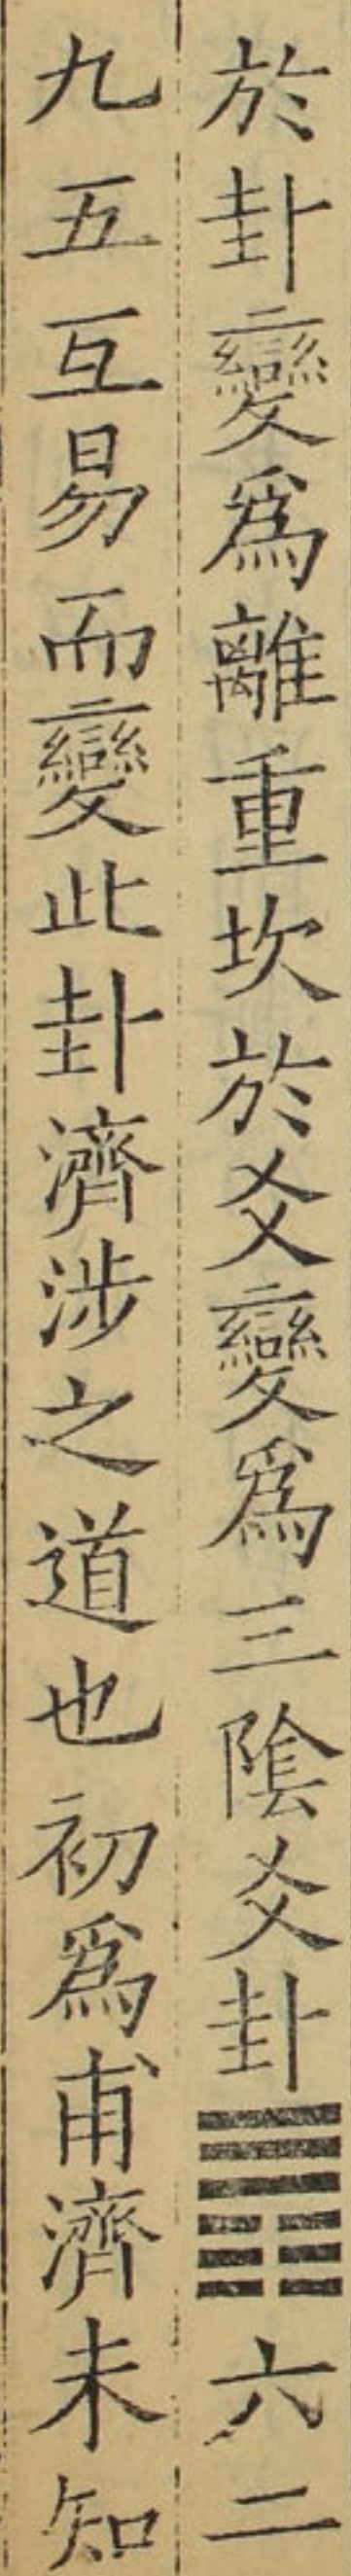 於卦變爲離重坎於爻變爲三陰爻卦䷋六二
九五互易而變此卦濟涉之道也初爲甫濟未知